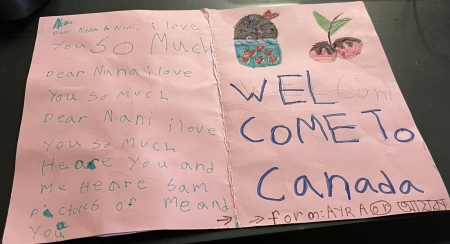 Dear Nana & Nani, i love
You SO Much
Dear Nana i love
You So Much
Dear Nani i love
You So Much
Heare You and
Me Heare Sam
Pictures of Me and
You
WELCom
COME To
Canada
→ → form: AYRA